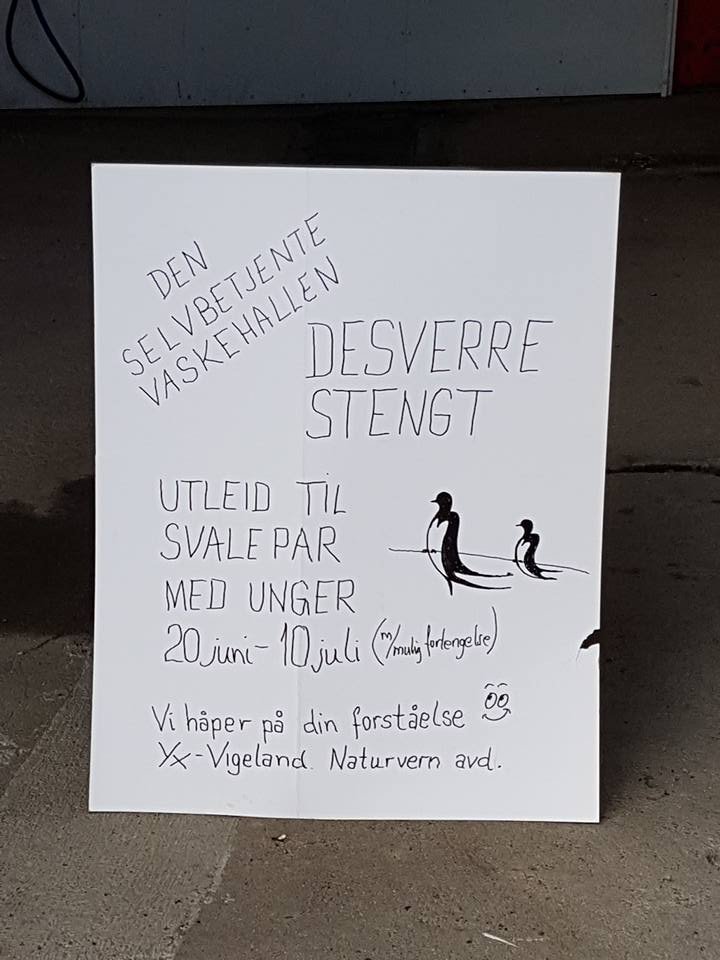 DEN
SELVBETJENTE
VASKEHALLEN
DESVERRE
STENGT
UTLEID TIL
SVALEPAR
MED UNGER
20 juni - 10 juli (m/mulig forlengelse)
Vi håper på din forståelse
Yx-Vigeland. Naturvern avd.